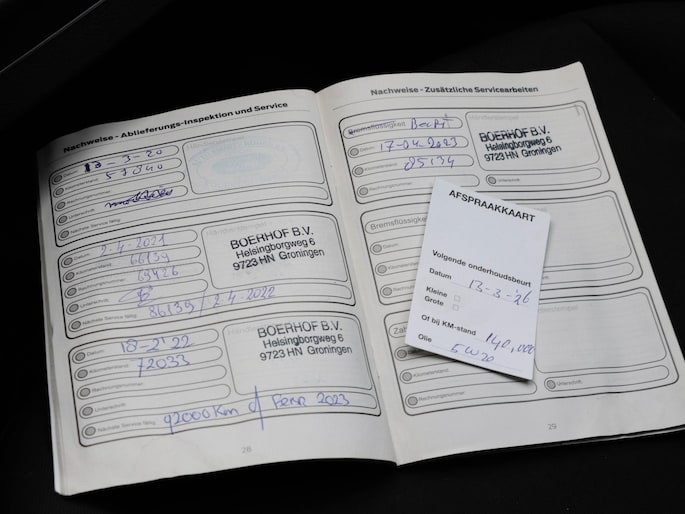 Nachweise - Ablieferungs-Inspektion und Service
-3-20
Kilometerstand
Unterschrift
Nächste Service fällig
Datum 2-4-2021
Kilometerstand 66139
Rechnungsnummer 69426
Unterschrift
Nächste Service fällig 86139 / 2-4-2022
BOERHOF B.V.
Helsingborgweg 6
9723 HN Groningen
Datum 18-2'22
Kilometerstand 72033
Rechnungsnummer
Unterschrift
Nächste Service fällig 92000 Km of Febr 2023
BOERHOF B.V.
Helsingborgweg 6
9723 HN Groningen
28
Nachweise - Zusätzliche Servicearbeiten
Bremsflüssigkeit
Datum 17-04-2023
Kilometerstand 85134
Rechnungsnummer
Händlerstempel
BOERHOF B.V.
Helsingborgweg 6
9723 HN Groningen
Unterschrift
Bremsflüssigkeit
Datum
Kilometerstand
Kilometerstand
Rechnungsnummer
Unterschrift
29
AFSPRAAKKAART
Volgende onderhoudsbeurt
Datum 13-3-26
Kleine
Grote
Of bij KM-stand 140,000
Olie 5W20